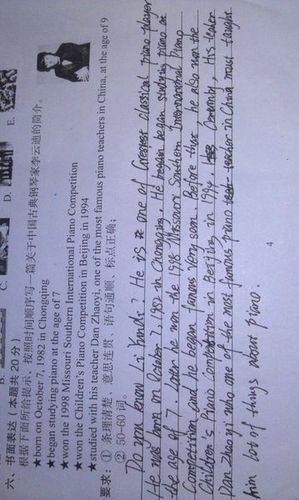 B. C. D. E.
六、书面表达(本题共 20 分)
根据下面所给提示、按照时间顺序写一篇关于中国古典钢琴家李云迪的简介。
★born on October 7, 1982 in Chongqing
★began studying piano at the age of 7
★won the 1998 Missouri Southern International Piano Competition
★won the Children's Piano Competition in Beijing in 1994
★studied with his teacher Dan Zhaoyi, one of the most famous piano teachers in China, at the age of 9
要求:① 条理清楚、意思连贯、语句通顺、标点正确;
② 50~60 词。
Do you know Li Yundi? He is one of Greatest classical piano player
He was born on October 7, 1982 in Chongqing. He began studying piano in
the age of 7. Later he won the 1998 Missouri Southern International Piano
Competition and he began famous very soon. Before that he also won the
Children's Piano Competition in Beijing in 1994. Certainly, His teacher
Dan Zhaoyi who one of the most famous piano teacher in China must taught
him lots of things about piano.
4